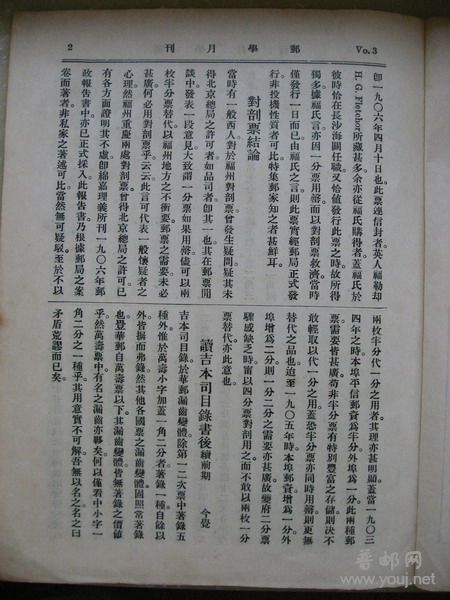 Vo. 3
郵學月刊
2
即一九〇六年四月十日也此票連信封者英人福勒却
H. G. Fletcher所藏甚多余亦從福氏購得者蓋福氏於
彼時恰在長沙海關任職又恰値發行此票之時故所得
獨多據福氏言亦因一分票用罄而以對剖票救濟當時
僅發行一日而已由福氏之言則此票實經郵局正式發
行非投機性質者可比特集郵家知之者甚鮮耳
對剖票結論
當時有一般西人對於福州對剖票曾發生疑問疑其未
得北京總局之許可者如品司者卽其一也其在郵票開
中發表一段意見大致謂一分票如果用罄儘可以兩
枚半分票替代以福州地方之不衝郵票之需要未必
甚廣何必用對剖票乎云云此言可代表一般懷疑者之
心理然福州重慶兩處對剖票曾得北京總局之許可已
有各方面證明其不虛卽綿嘉理義所刊一九〇六年郵
政報告書中亦已正式採入此報告書乃根據郵局之案
卷而著者非私家之著述可比當然無可疑駁至於不以
兩枚半分代一分之用者其理亦甚明顯蓋當一九〇三
四年之時本埠平信郵資爲半分外埠爲一分此兩種郵
票需要皆甚廣苟非半分票有特別豐富之存儲則決不
敢輕取以代一分之用蓋恐半分票亦同時用罄則更無
替代之品也迨至一九〇五年時本埠郵資增爲一分外
埠增爲二分則一分二分之需要亦甚廣故變府二分票
驟感缺乏時甯以四分票對剖用之而不敢以兩枚一分
票替代亦此意也
讀吉本司目錄書後 續前期 今覺
吉本司目錄於華郵漏齒變體除第一二次票中著錄五
種外惟於萬壽小字加蓋一角二分者著錄一種自餘以
外皆摒而弗錄然其他各國票之漏齒變體固照常著錄
也豈華郵自萬壽票以下其漏齒變體皆無著錄之價値
乎然萬壽票中有名之漏齒亦夥矣何以僅看中小字一
角二分之一種乎其用意實不可解吾無以名之名之曰
矛盾荒謬而已矣
普邮网
www.youj.net